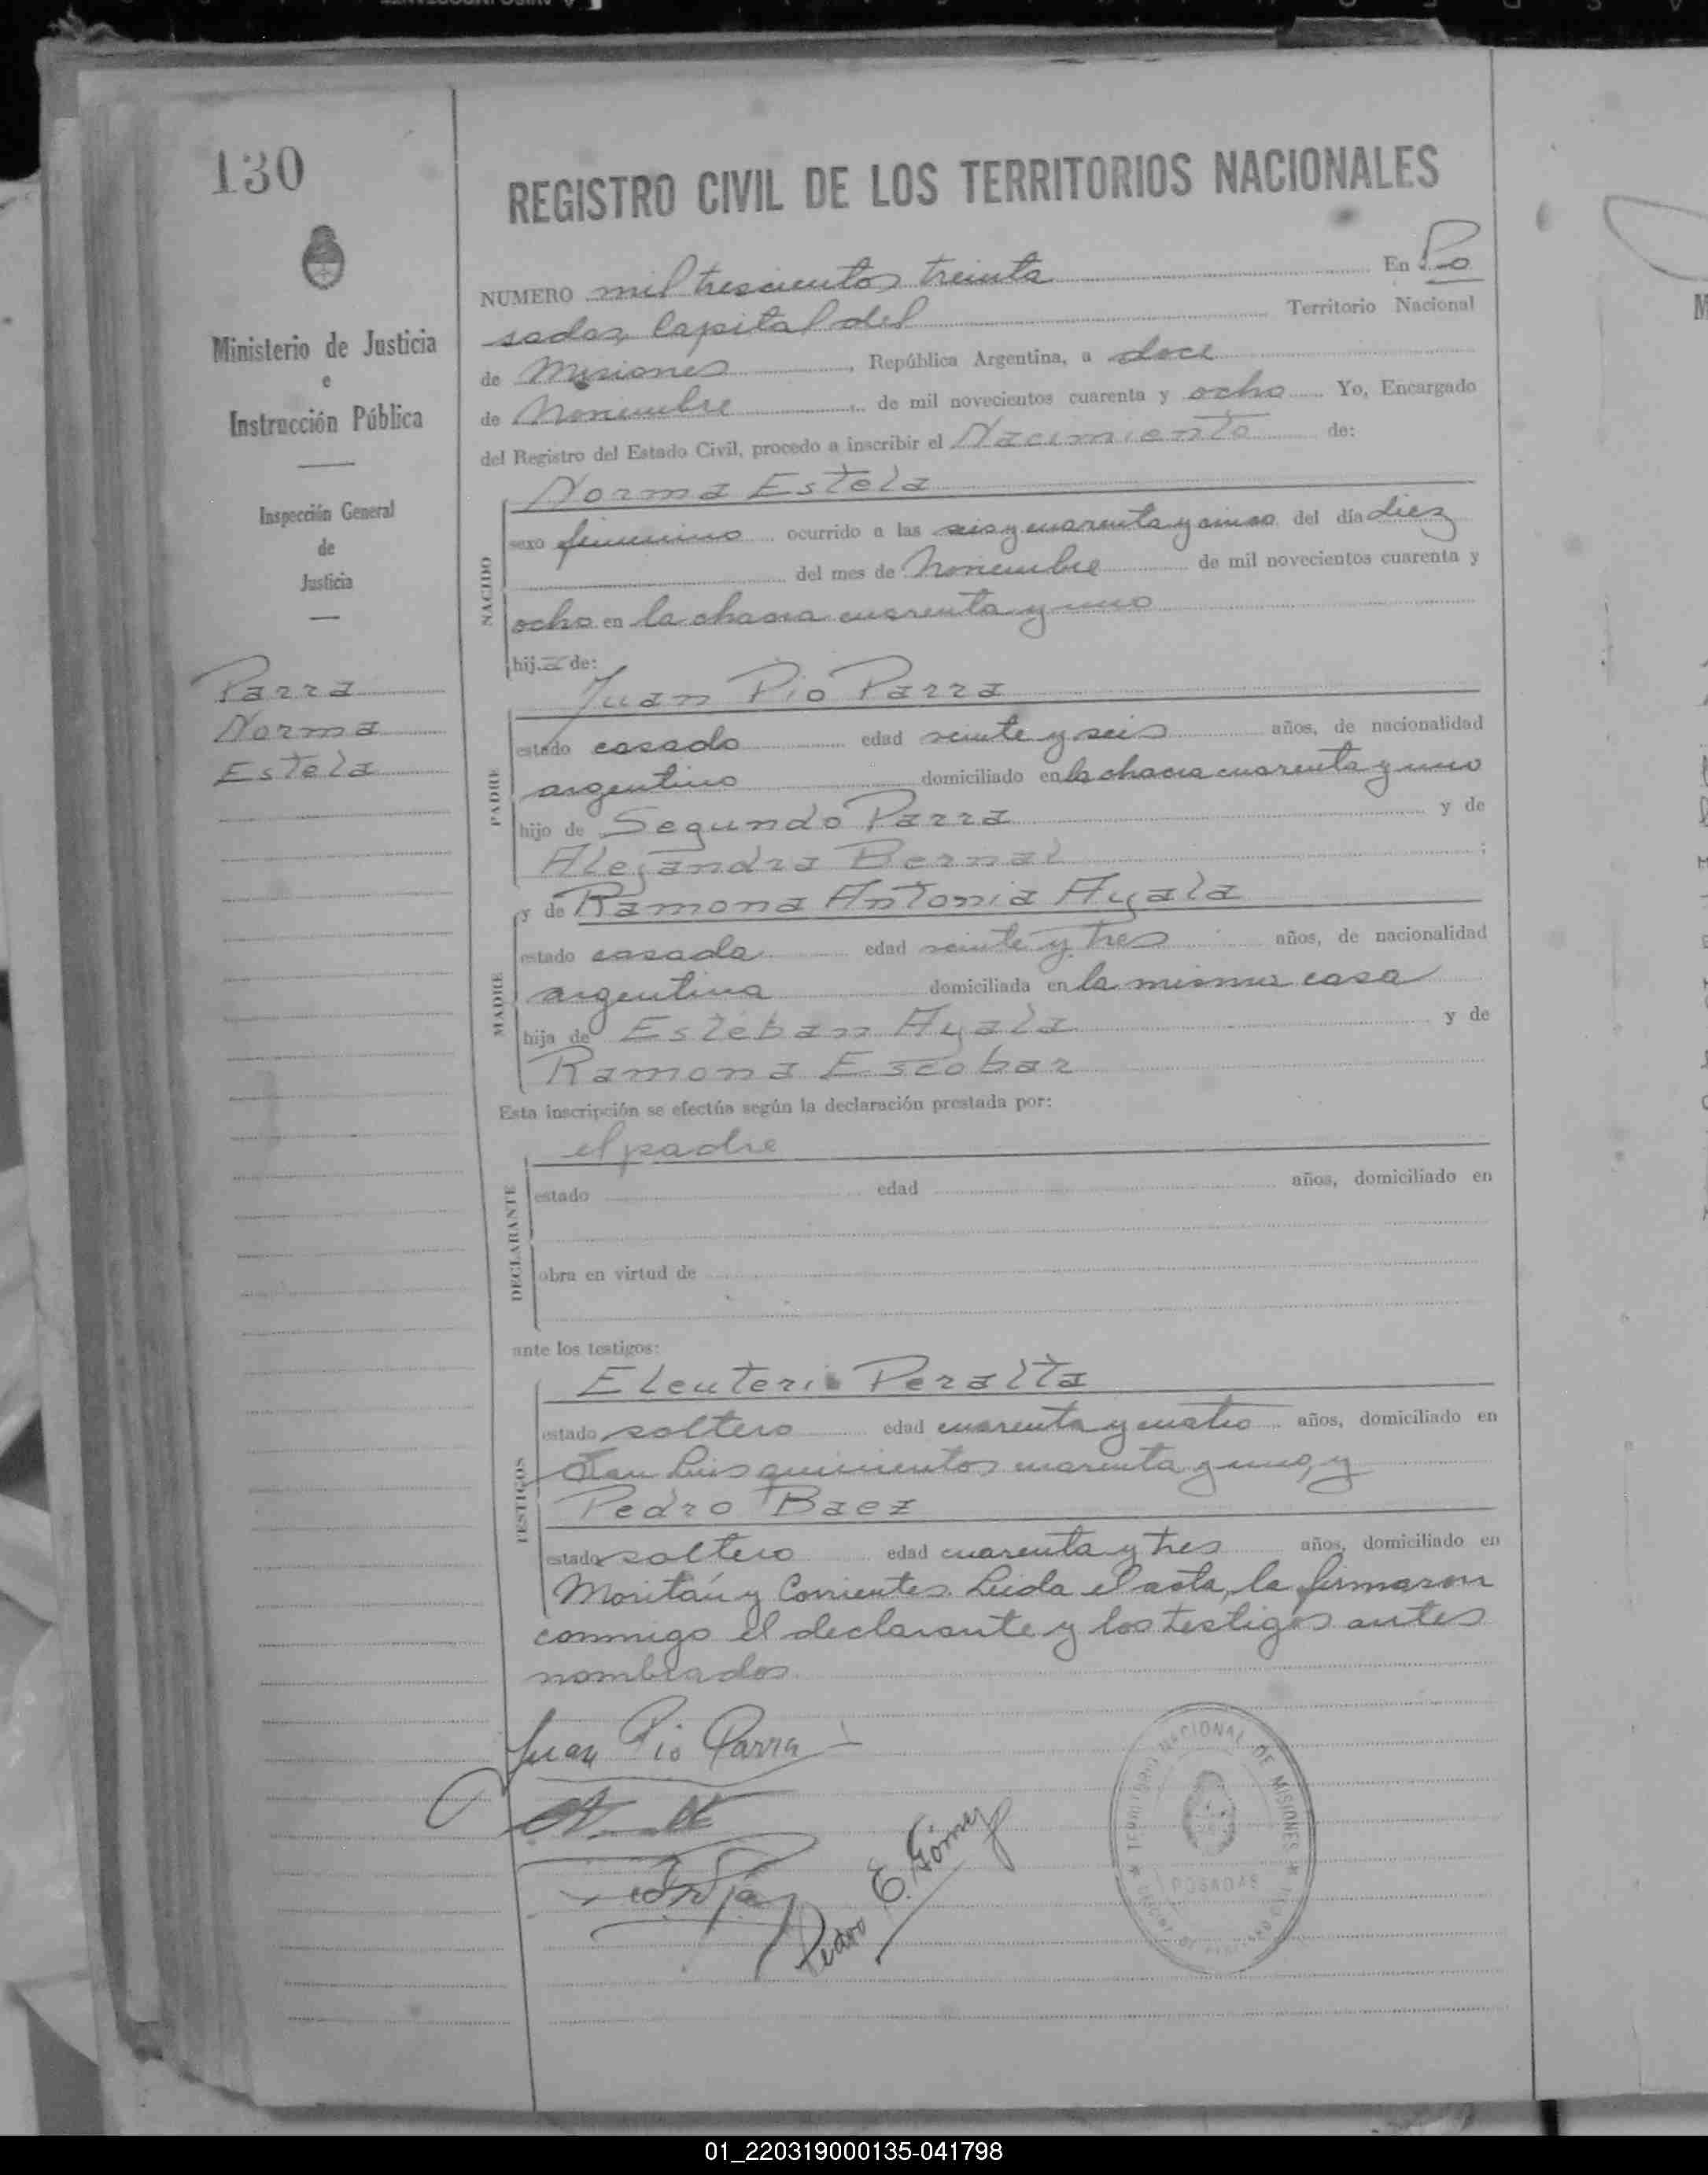 130
Ministerio de Justicia
e
Instrucción Pública
Inspección General
de
Justicia
Parra
Norma
Estela
REGISTRO CIVIL DE LOS TERRITORIOS NACIONALES
NUMERO mil trescientos treinta En Po
sadas, Capital del Territorio Nacional
de Misiones, República Argentina, a doce
de Noviembre de mil novecientos cuarenta y ocho Yo, Encargado
del Registro del Estado Civil, procedo a inscribir el Nacimiento de:
Norma Estela
NACIDO
sexo femenino ocurrido a las seis y cuarenta y cinco del día diez
del mes de Noviembre de mil novecientos cuarenta y
ocho en la chacra cuarenta y uno
hija de:
Juan Pio Parra
PADRE
estado casado edad veinte y seis años, de nacionalidad
argentino domiciliado en la chacra cuarenta y uno
hijo de Segundo Parra y de
Alejandra Bernal;
y de Ramona Antonia Ayala
MADRE
estado casada edad veinte y tres años, de nacionalidad
argentina domiciliada en la misma casa
hija de Esteban Ayala y de
Ramona Escobar
Esta inscripción se efectúa según la declaración prestada por:
el padre
DECLARANTE
estado edad años, domiciliado en
obra en virtud de
ante los testigos:
Eleuterio Peralta
TESTIGOS
estado soltero edad cuarenta y cuatro años, domiciliado en
San Luis quinientos cuarenta y uno, y
Pedro Baez
estado soltero edad cuarenta y tres años, domiciliado en
Moritán y Corrientes. Leida el acta, la firmaron
conmigo el declarante y los testigos antes
nombrados
Juan Pio Parra
Pedro E. Gómez
TERRITORIO NACIONAL DE MISIONES
POSADAS
01_220319000135-041798